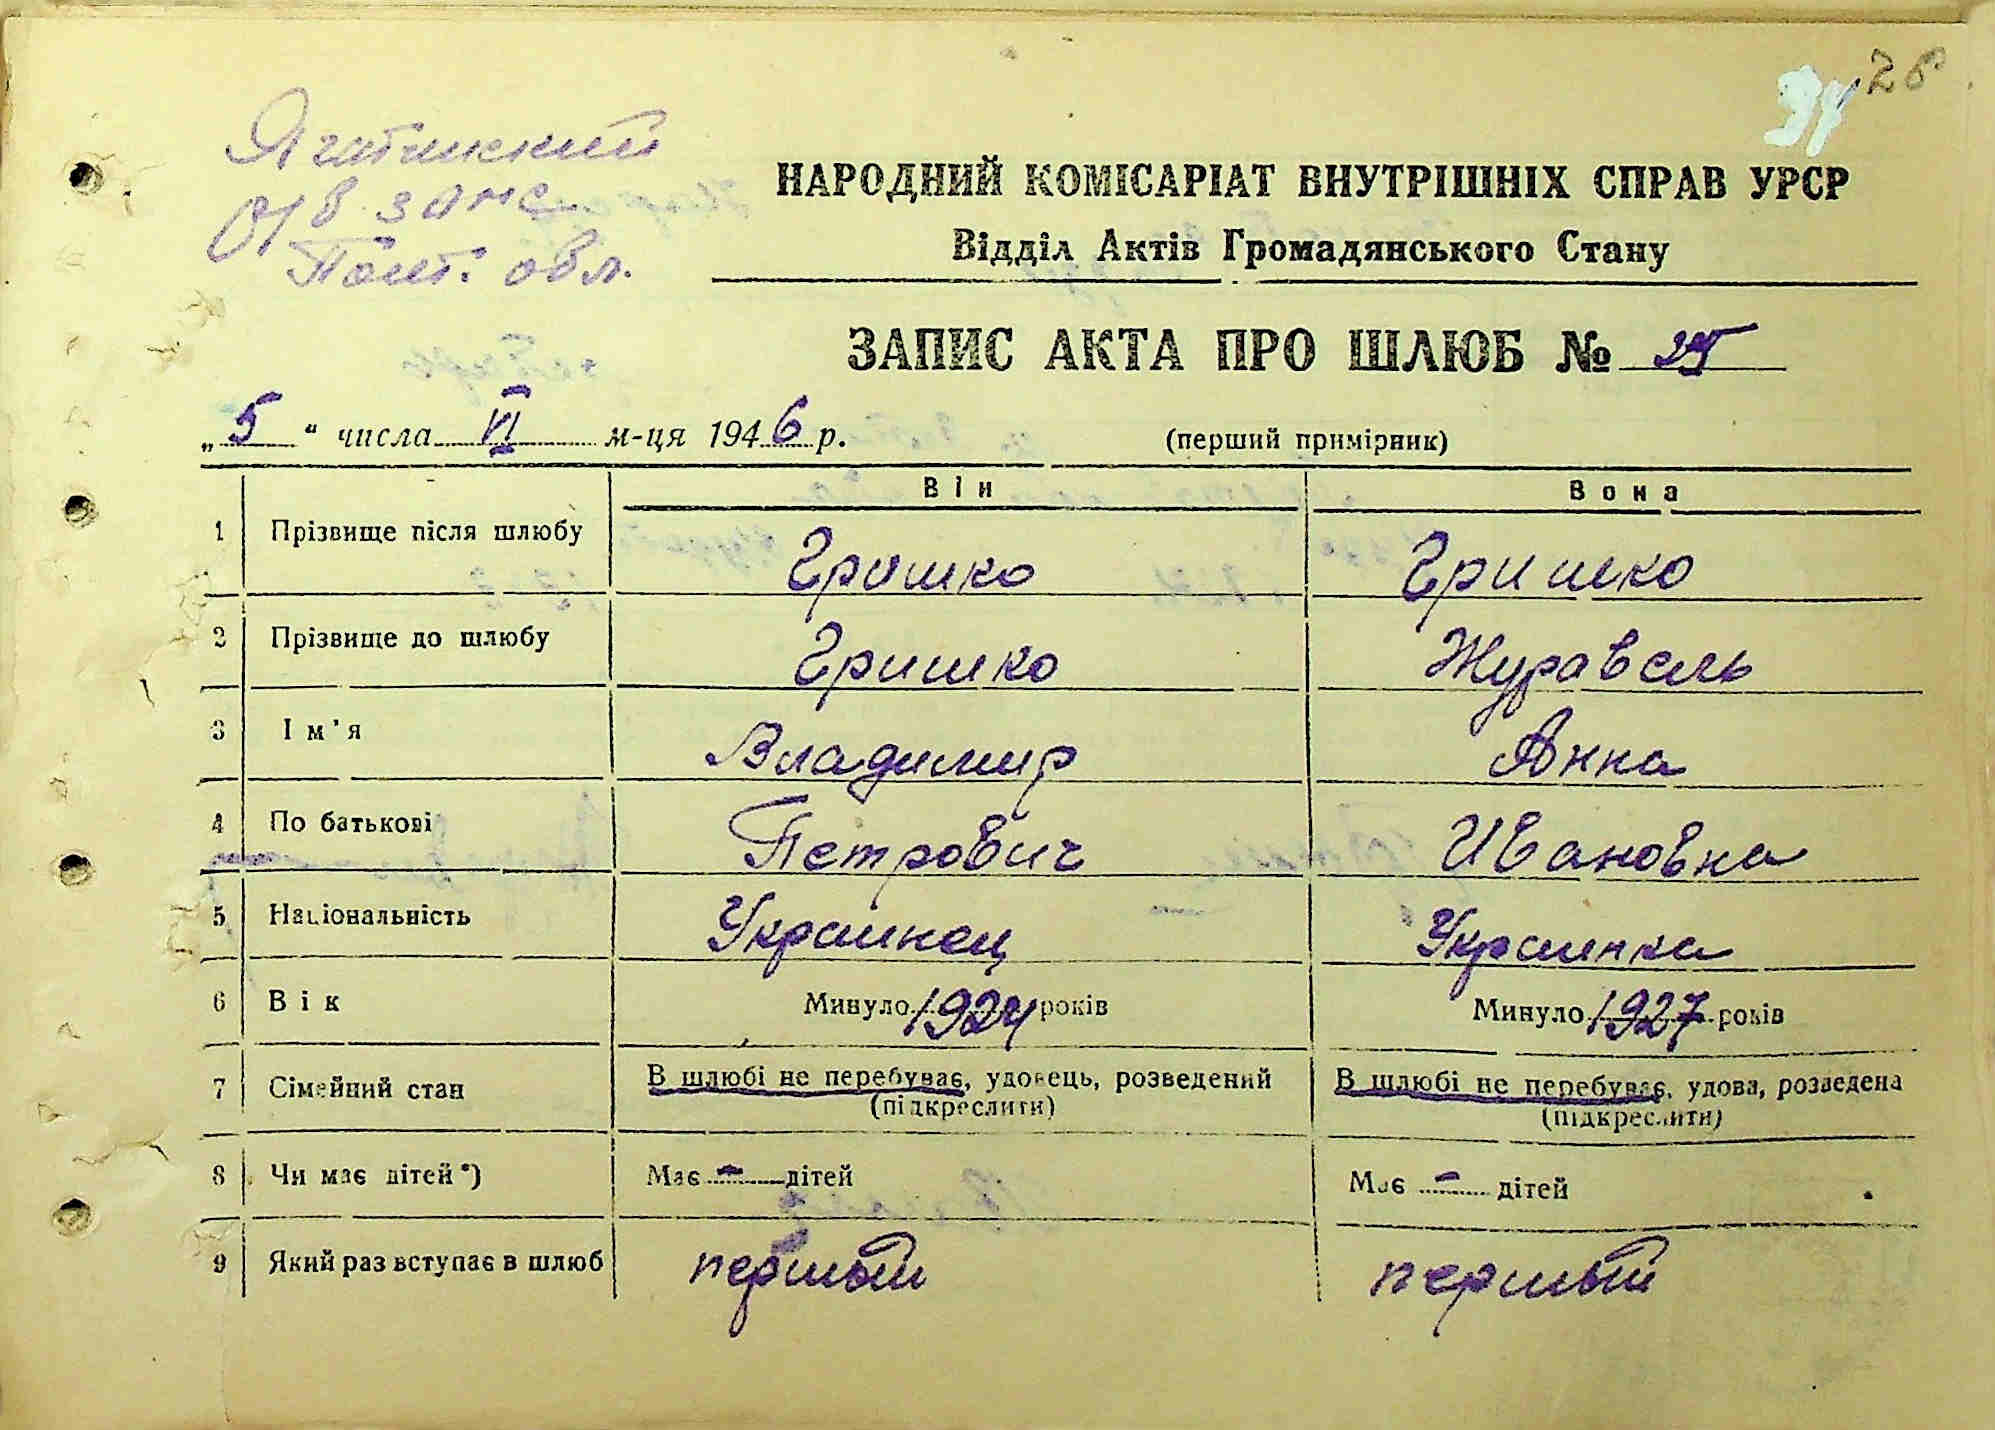 28
34
Яготинский
от в загс
Полт. обл.
НАРОДНИЙ КОМІСАРІАТ ВНУТРІШНІХ СПРАВ УРСР
Відділ Актів Громадянського Стану
ЗАПИС АКТА ПРО ШЛЮБ № 25
„5“ числа VI м-ця 1946 р. (перший примірник)
Він Вона
1 Прізвище після шлюбу Гришко Гришко
2 Прізвище до шлюбу Гришко Журавель
3 Ім'я Владимир Анна
4 По батькові Петрович Ивановна
5 Національність Украинец Украинка
6 Вік Минуло 1924 років Минуло 1927 років
7 Сімейний стан В шлюбі не перебуває, удовець, розведений В шлюбі не перебуває, удова, розведена
(підкреслити) (підкреслити)
8 Чи має дітей*) Має - дітей Має - дітей
9 Який раз вступає в шлюб первый первый